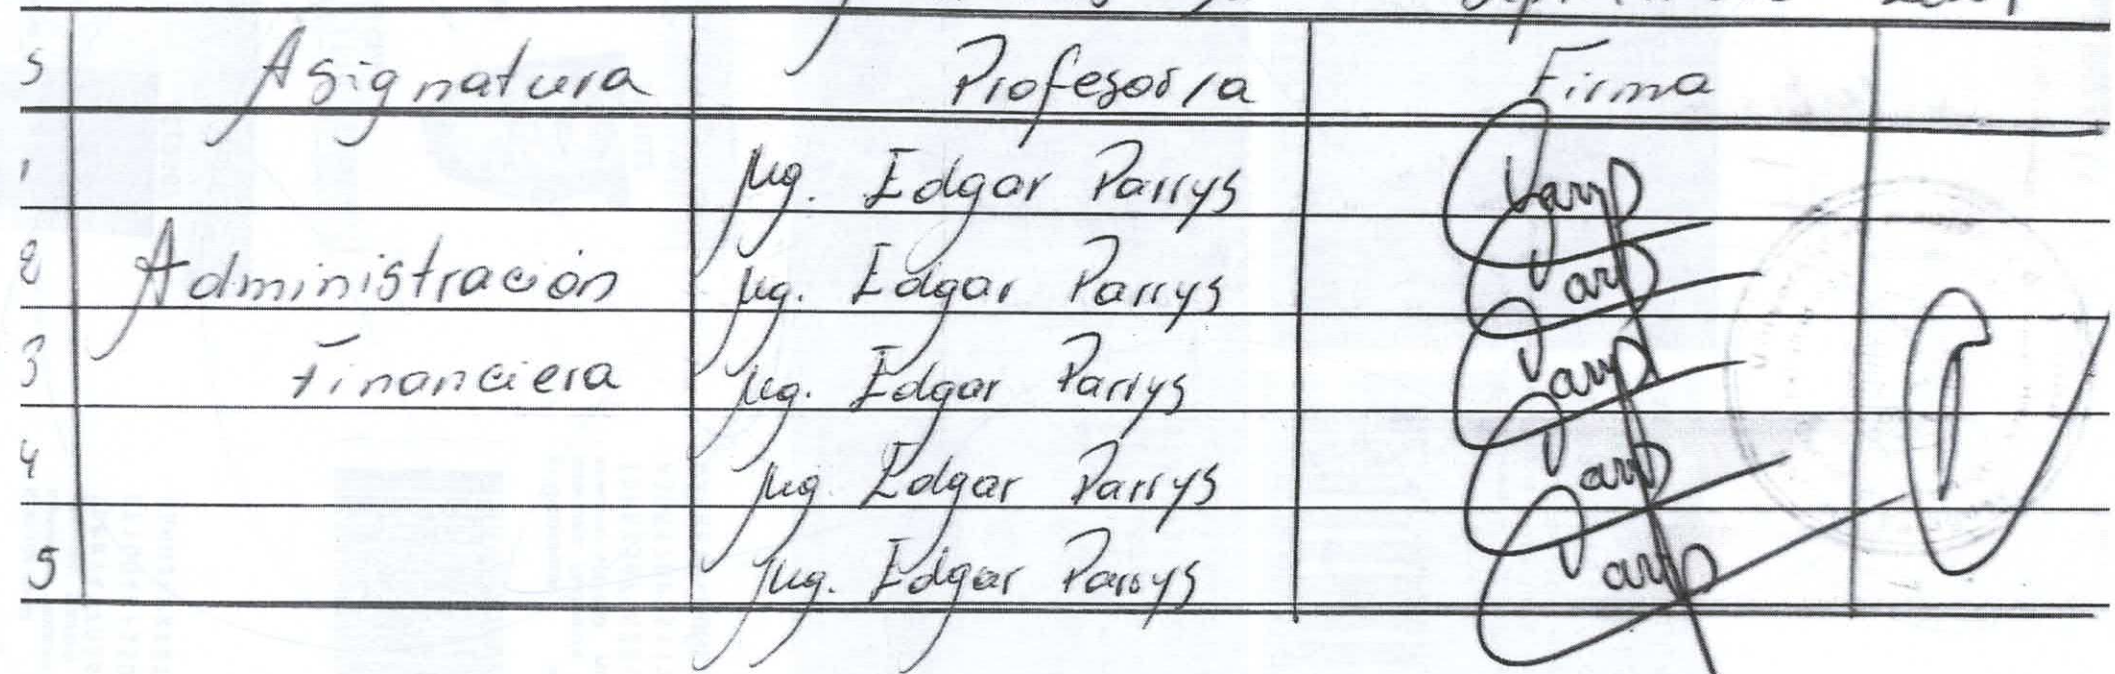 S Asignatura Profesor/a Firma
1 Mg. Edgar Parrys
2 Administración Mg. Edgar Parrys
3 Financiera Mg. Edgar Parrys
4 Mg. Edgar Parrys
5 Mg. Edgar Parrys